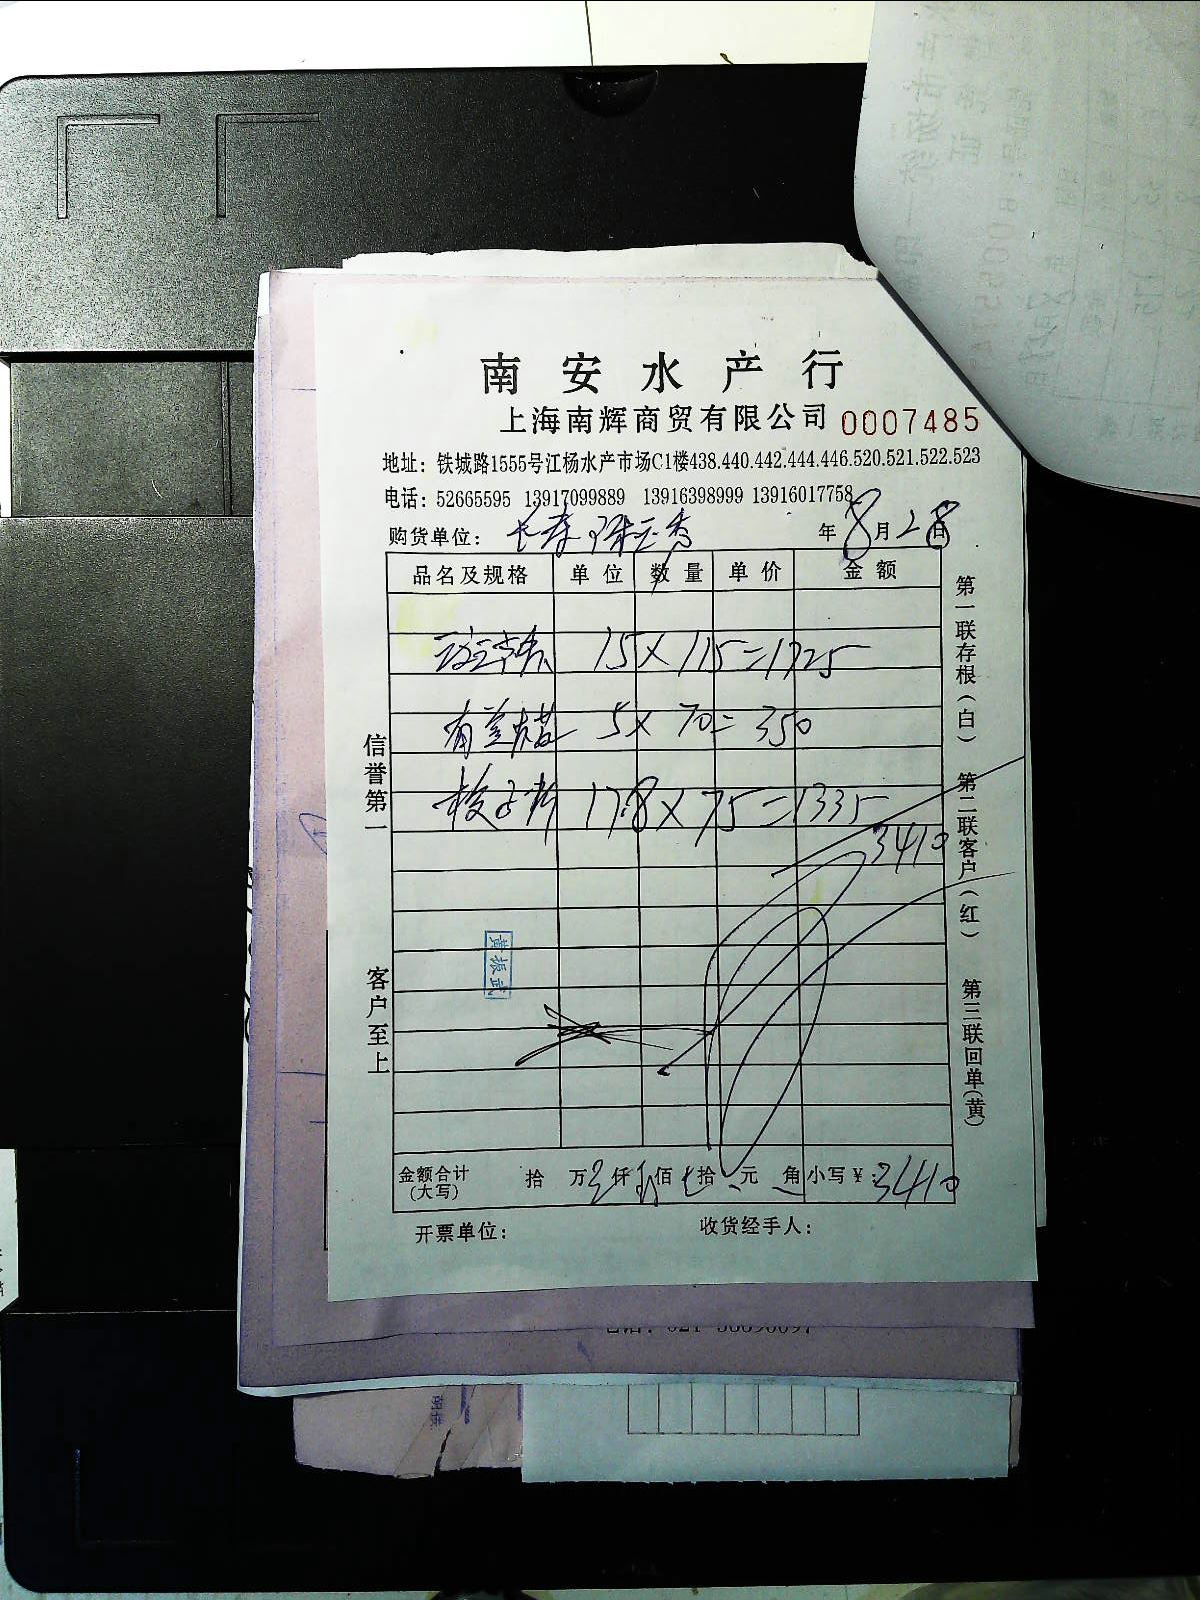 南安水产行
上海南辉商贸有限公司 0007485
地址：铁城路1555号江杨水产市场C1楼438.440.442.444.446.520.521.522.523
电话：52665595 13917099889 13916398999 13916017758
购货单位：长春 年8月28日
品名及规格 单位 数量 单价 金额
15×115=1725
5×70=350
17.8×75=1335
3410
信誉第一
客户至上
黄振武
第一联存根（白）
第二联客户（红）
第三联回单（黄）
金额合计 拾 万 仟 佰 拾 元 角 小写¥：3410
（大写）
开票单位： 收货经手人：